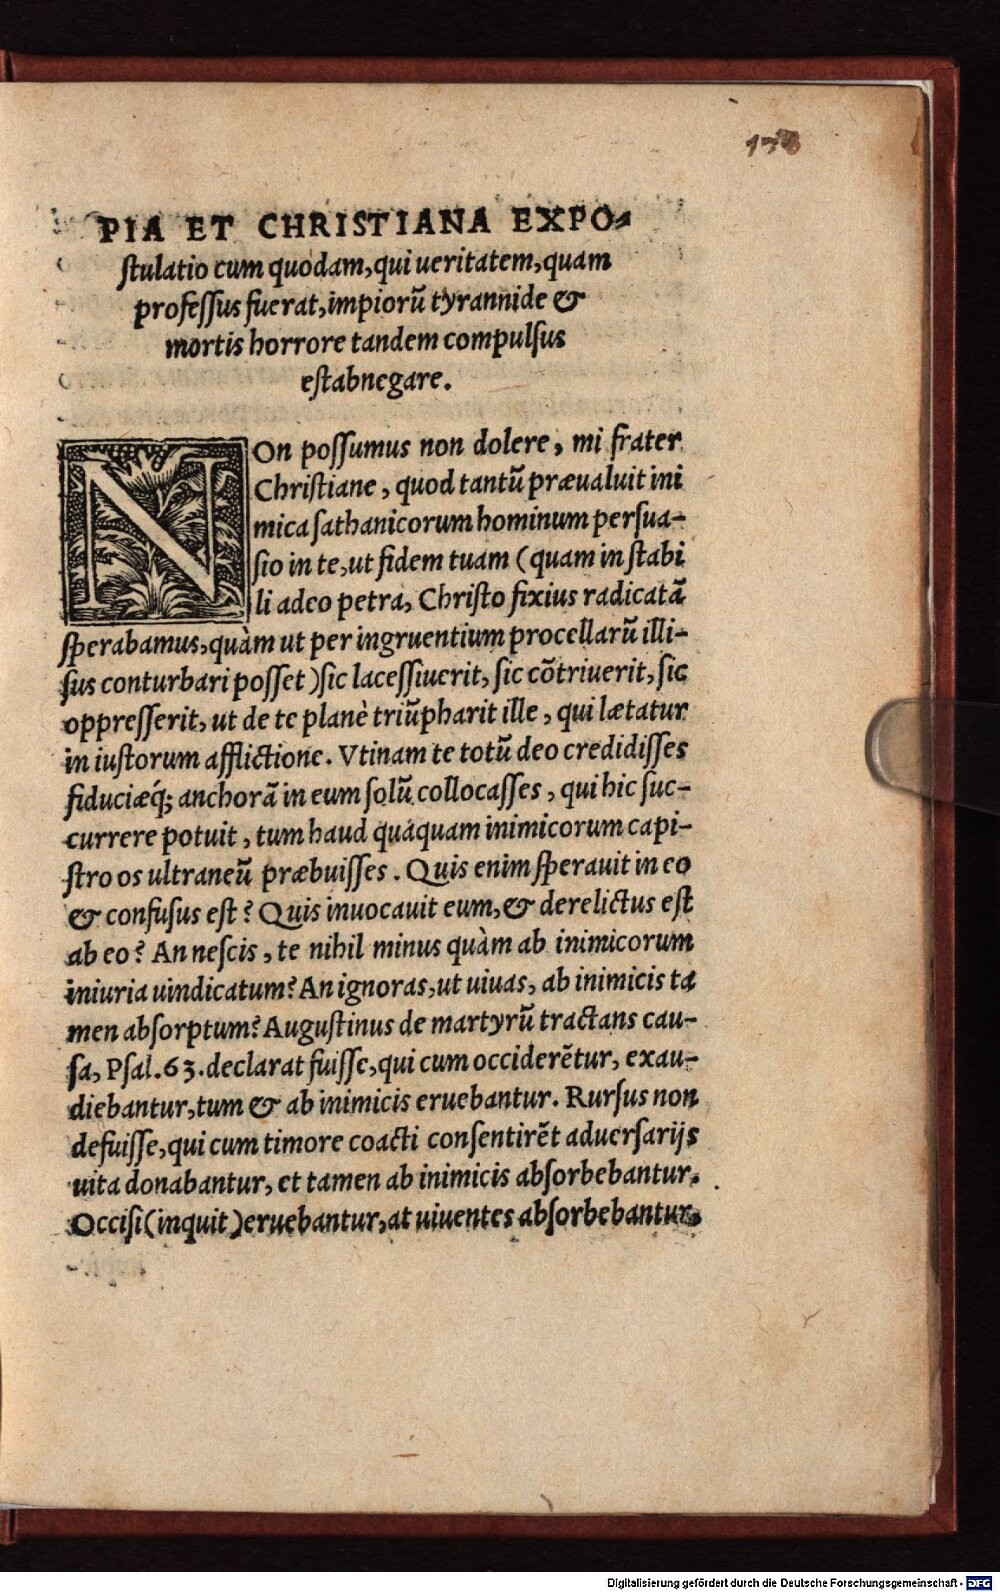 PIA ET CHRISTIANA EXPO-
stulatio cum quodam, qui ueritatem, quam
professus fuerat, impiorū tyrannide &
mortis horrore tandem compulsus
est abnegare.
NOn possumus non dolere, mi frater
Christiane, quod tantū præualuit ini
mica sathanicorum hominum persua-
sio in te, ut fidem tuam (quam in stabi
li adeo petra, Christo fixius radicatā
sperabamus, quàm ut per ingruentium procellarū illi-
sus conturbari posset) sic lacessiuerit, sic cōtriuerit, sic
oppresserit, ut de te planè triūpharit ille, qui lætatur
in iustorum afflictione. Vtinam te totū deo credidisses
fiduciæq́; anchorā in eum solū collocasses, qui hic suc-
currere potuit, tum haud quaquam inimicorum capi-
stro os ultraneū præbuisses. Quis enim sperauit in eo
& confusus est? Quis inuocauit eum, & derelictus est
ab eo? An nescis, te nihil minus quàm ab inimicorum
iniuria uindicatum? An ignoras, ut uiuas, ab inimicis ta
men absorptum? Augustinus de martyrū tractans cau-
sa, Psal. 63. declarat fuisse, qui cum occiderētur, exau-
diebantur, tum & ab inimicis eruebantur. Rursus non
defuisse, qui cum timore coacti consentirēt aduersarijs
uita donabantur, et tamen ab inimicis absorbebantur.
Occisi (inquit) eruebantur, at uiuentes absorbebantur.
Digitalisierung gefördert durch die Deutsche Forschungsgemeinschaft - DFG